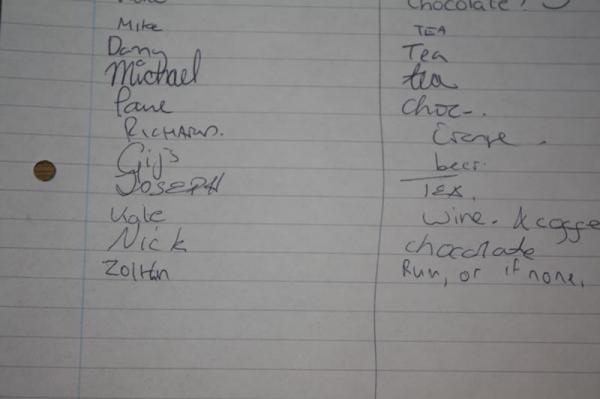 Chocolate!
Mike TEA
Dany Tea
Michael tea
choc-.
RICHARD.
Gijs beer.
JOSEPH TEA.
Kate wine. & coffe
Nick chocolate
Zoltán Rum, or if none,